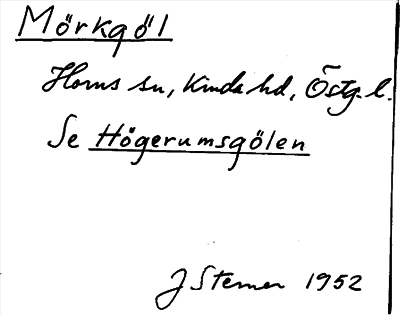 Mörkgöl
Horns sn, Kinda hd, Östg. l.
Se Högerumsgölen
J Sterner 1952